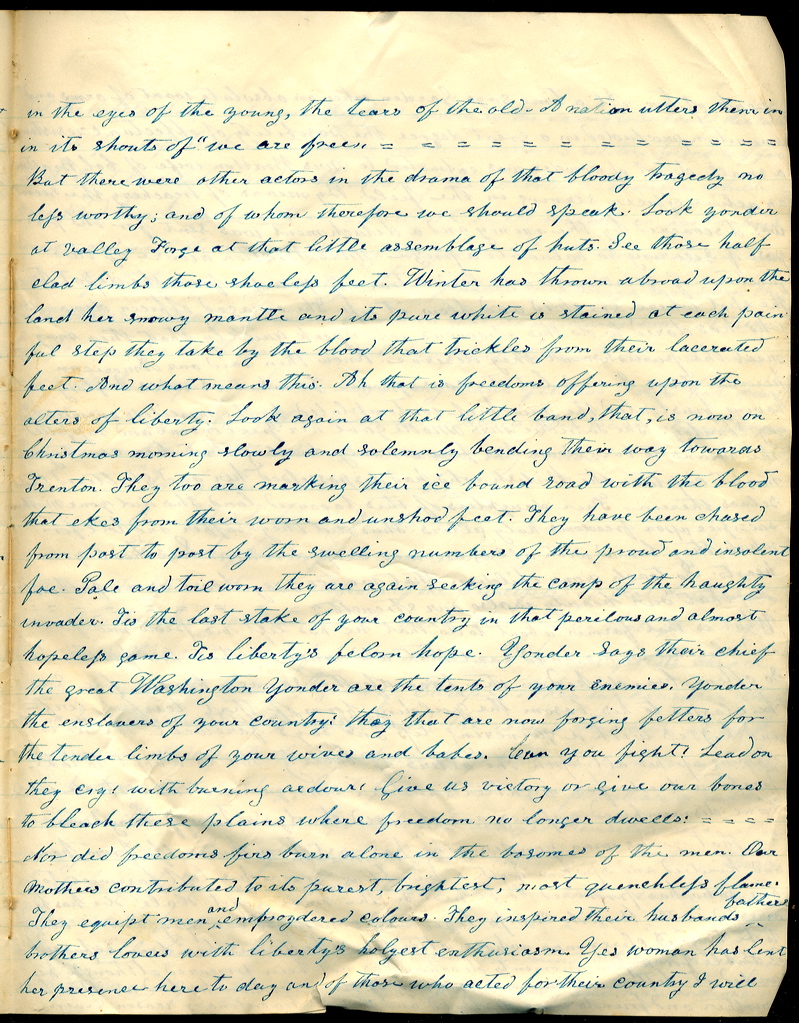 in the eyes of the young, the tears of the old. A nation utters them in
in its shouts of "we are free". = = = = = = = = = = = =
But there were other actors in the drama of that bloody tragedy no
less worthy; and of whom therefore we should speak. Look yonder
at valley Forge at that little assemblage of huts. See those half
clad limbs those shoeless feet. Winter has thrown abroad upon the
land her snowy mantle and its pure white is stained at each pain
ful step they take by the blood that trickles from their lacerated
feet. And what means this. Ah that is freedoms offering upon the
alters of liberty. Look again at that little band, that, is now on
Christmas morning slowly and solemnly bending their way towards
Trenton. They too are marking their ice bound road with the blood
that ekes from their worn and unshod feet. They have been chased
from post to post by the swelling numbers of the proud and insolent
foe. Pale and toil worn they are again seeking the camp of the haughty
invader. Tis the last stake of your country in that perilous and almost
hopeless game. Tis liberty's felorn hope. Yonder says their chief
the great Washington Yonder are the tents of your enemies. Yonder
the enslavers of your country! they that are now forging fetters for
the tender limbs of your wives and babes. Can you fight? Lead on
they cry! with burning ardour! Give us victory or give our bones
to bleach these plains where freedom no longer dwells: = = = =
Nor did freedoms fire burn alone in the bosomes of the men. Our
Mothers contributed to its purest, brightest, most quenchless flame.
They equipt men and embroydered colours. They inspired their husbands fathers
brothers lovers with liberty's holyest enthusiasm. Yes woman has lent
her presence here to day and of those who acted for their country I will